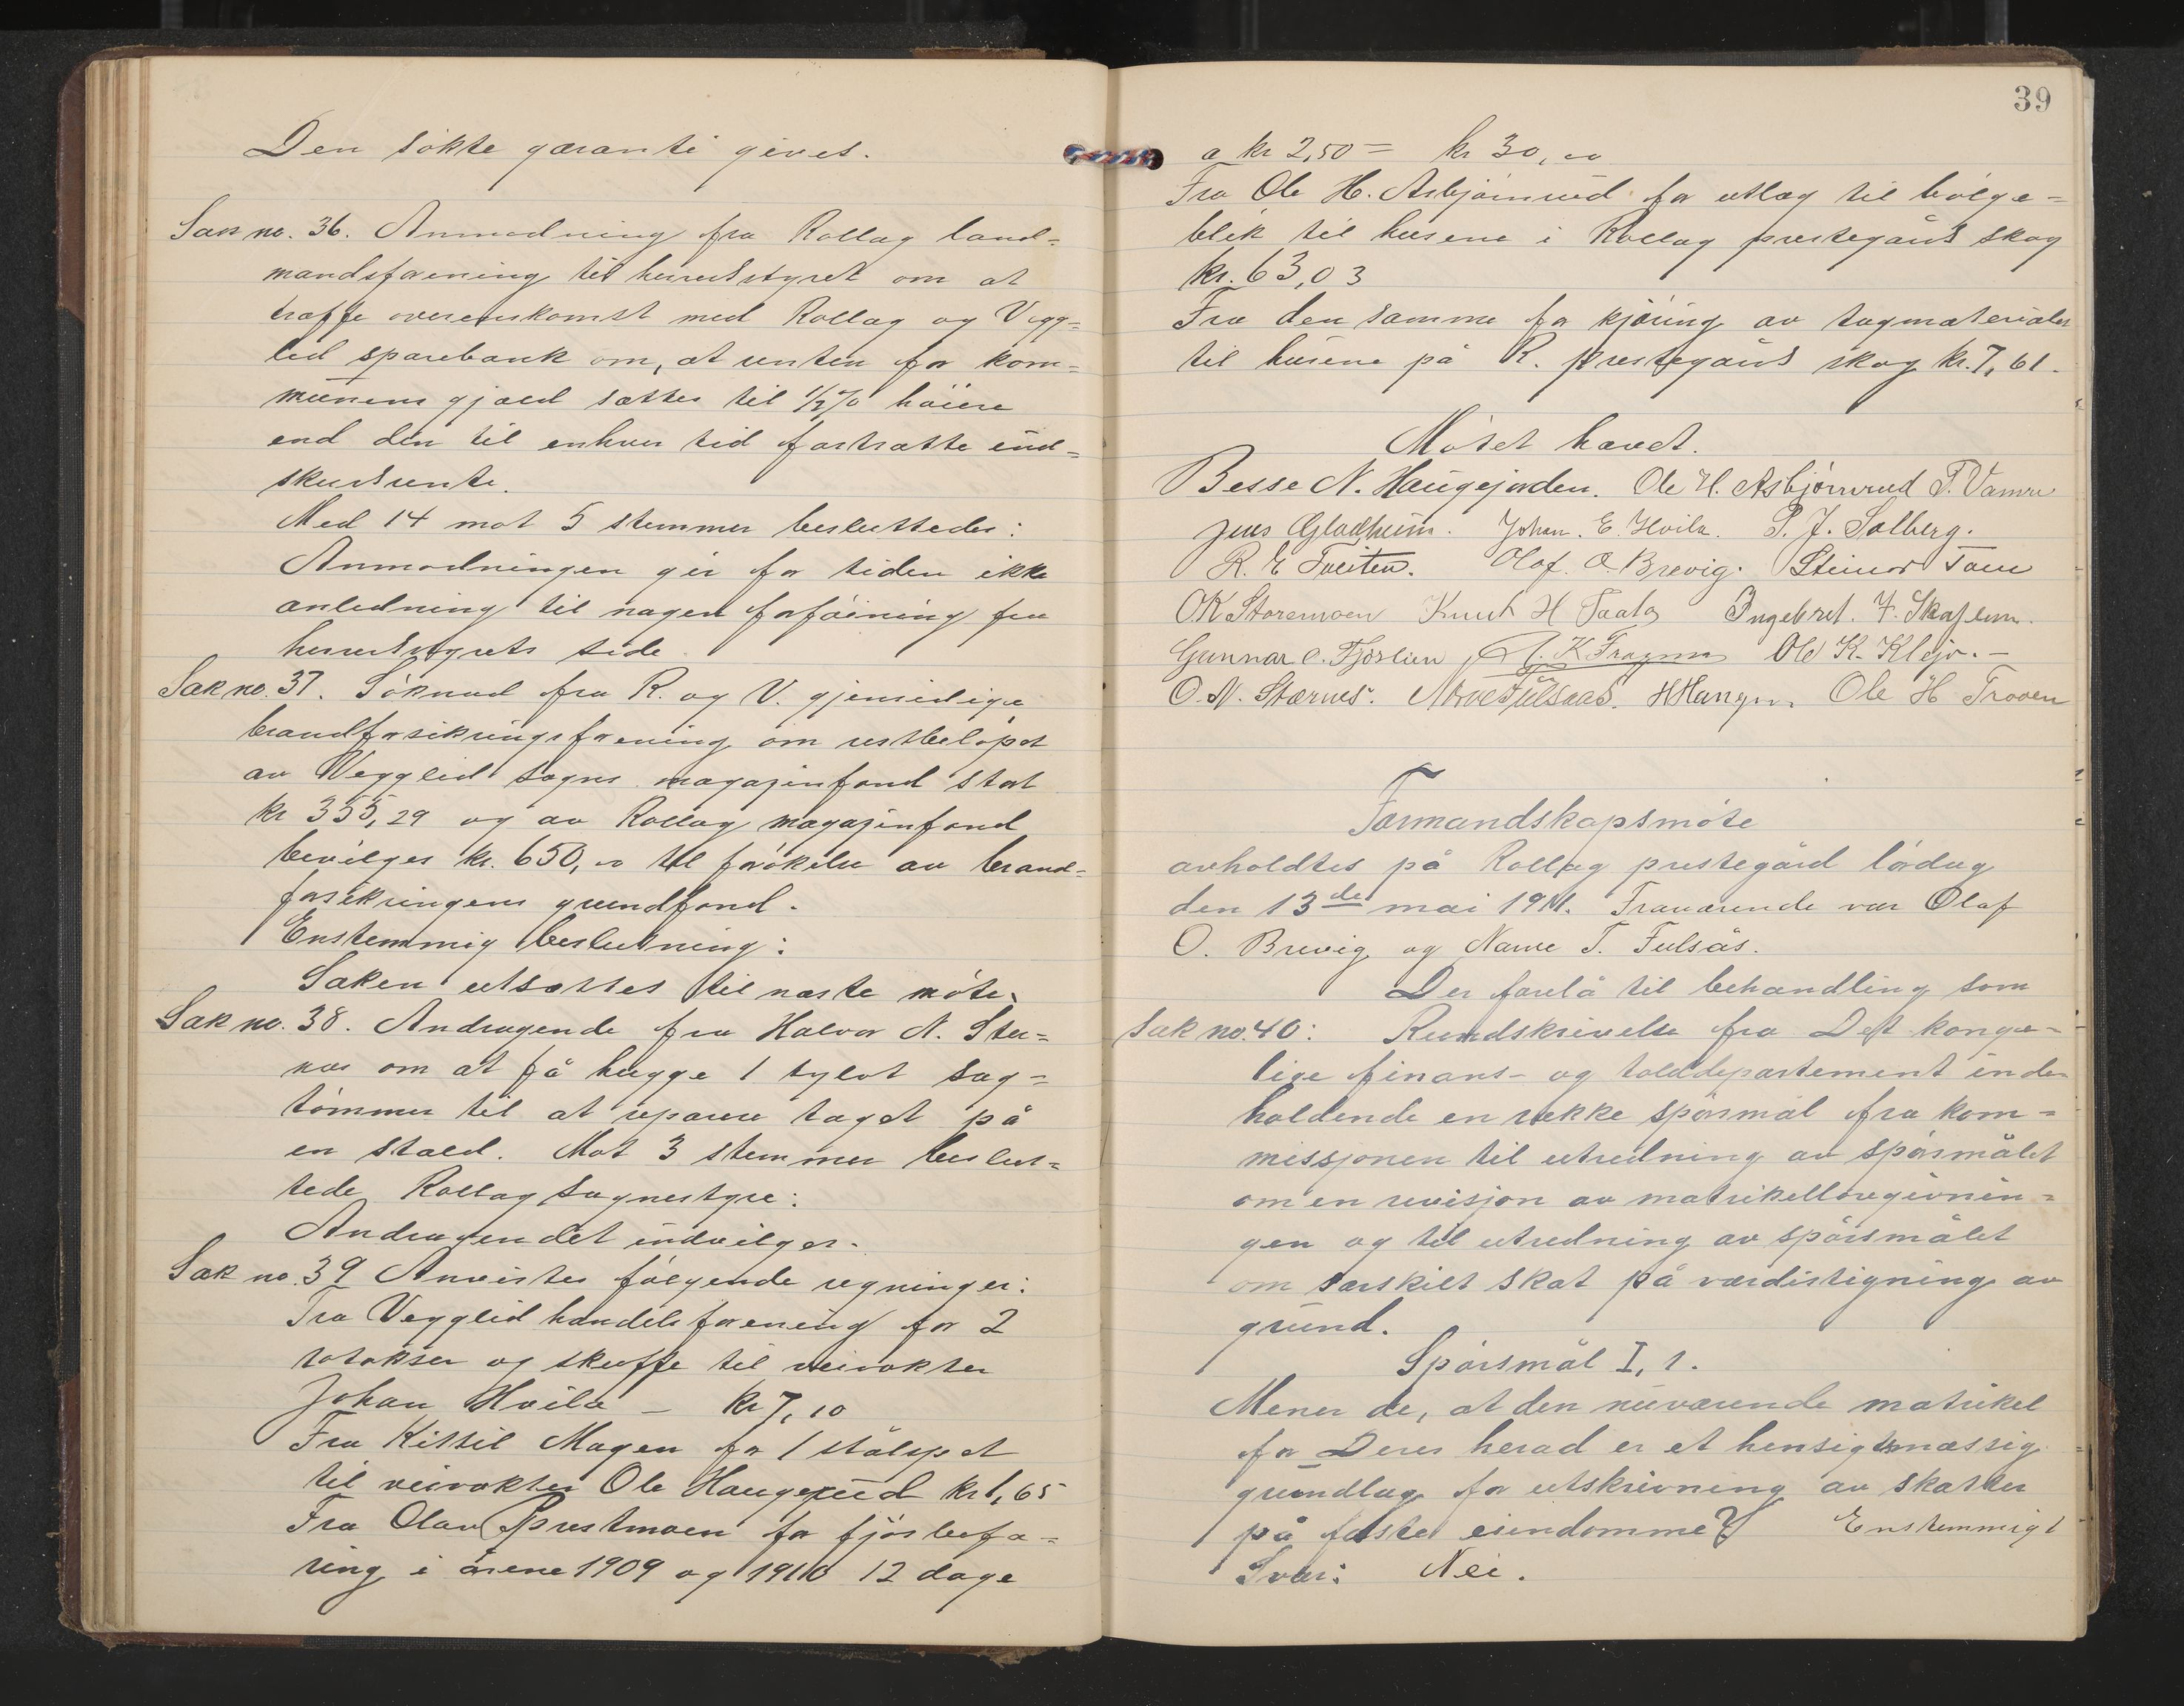 Den søkte garanti gives.
Sak no. 36. Anmodning fra Rollag land=
mandsforening til herredsstyret om at
træffe overenskomst med Rollag og Vegg=
lid sparebank om, at renten for kom=
munens gjæld sættes til ½% høiere
end den til enhver tid fastsatte ind=
skudsrente.
Med 14 mot 5 stemmer besluttedes:
Anmodningen gir for tiden ikke
anledning til nogen forføining fra
herredsstyrets side.
Sak no. 37. Søknad fra R. og V. gjensidige
brandforsikringsforening om restbeløpet
av Vegglid sogns magazinfond stort
kr 355,29 og av Rollag magazinfond
bevilges kr. 650,00 til forøkelse av brand=
forsikringens grundfond.
Enstemmig beslutning:
Saken utsættes til næste møte.
Sak no. 38. Andragende fra Halvor N. Stær=
nes om at få hugge 1 tylvt sag=
tømmer til at reparere taget på
en stald. Mot 3 stemmer beslut=
tede Rollag sognestyre:
Andragendet indvilges.
Sak no. 39 Anvistes følgende regninger:
Fra Vegglid handelsforening for 2
rotøkser og skuffe til veivokter
Johan Hvila – kr 7,10
Fra Kittil Magen for 1 stålspet
til veivokter Ole Haugerud kr 1,65
Fra Olav Prestmoen for fjøsbefa=
ring i årene 1909 og 1910 12 dage
39
a kr 2,50 = kr 30,00
Fra Ole H. Asbjørnrud for utlæg til bølge=
blik til husene i Rollag prestegårds skog
kr. 63,03
Fra den samme for kjøring av tagmaterialer
til husene på R. prestegårds skog kr. 7,61.
Møtet hævet.
Besse N. Haugejorden. Ole H. Asbjørnrud T. Vamre
Jens Gladheim. Johan. E. Hvila. P. J. Solberg.
R. E Tveiten. Olaf. O. Brevig. Steinar Tom
OK Storemoen Knut H Taata Ingebret. F. Skajem.
Gunnar O. Fjøslien K Frøgne Ole K. Klejo. –
O. N. Stærnes. Narve Fulsaas. Ole H Trooen
Formandskapsmøte
avholdtes på Rollag prestegård lørdag
den 13de mai 1911. Fraværende var Olaf
O. Brevig og Narve T. Fulsås.
Der forelå til behandling som
Sak no. 40: Rundskrivelse fra Det konge-
lige finans- og tolddepartement inde-
holdende en række spørsmål fra kom=
missjonen til utredning av spørsmålet
om en revisjon av matrikellovgivnin=
gen og til utredning av spørsmålet
om særskilt skat på værdistigning av
grund.
Spørsmål I, 1.
Mener de, at den nuværende matrikel
for Deres herad er et hensigtsmæssig
grundlag for utskrivning av skatter
på faste eiendomme? Enstemmigt
Svar: Nei.